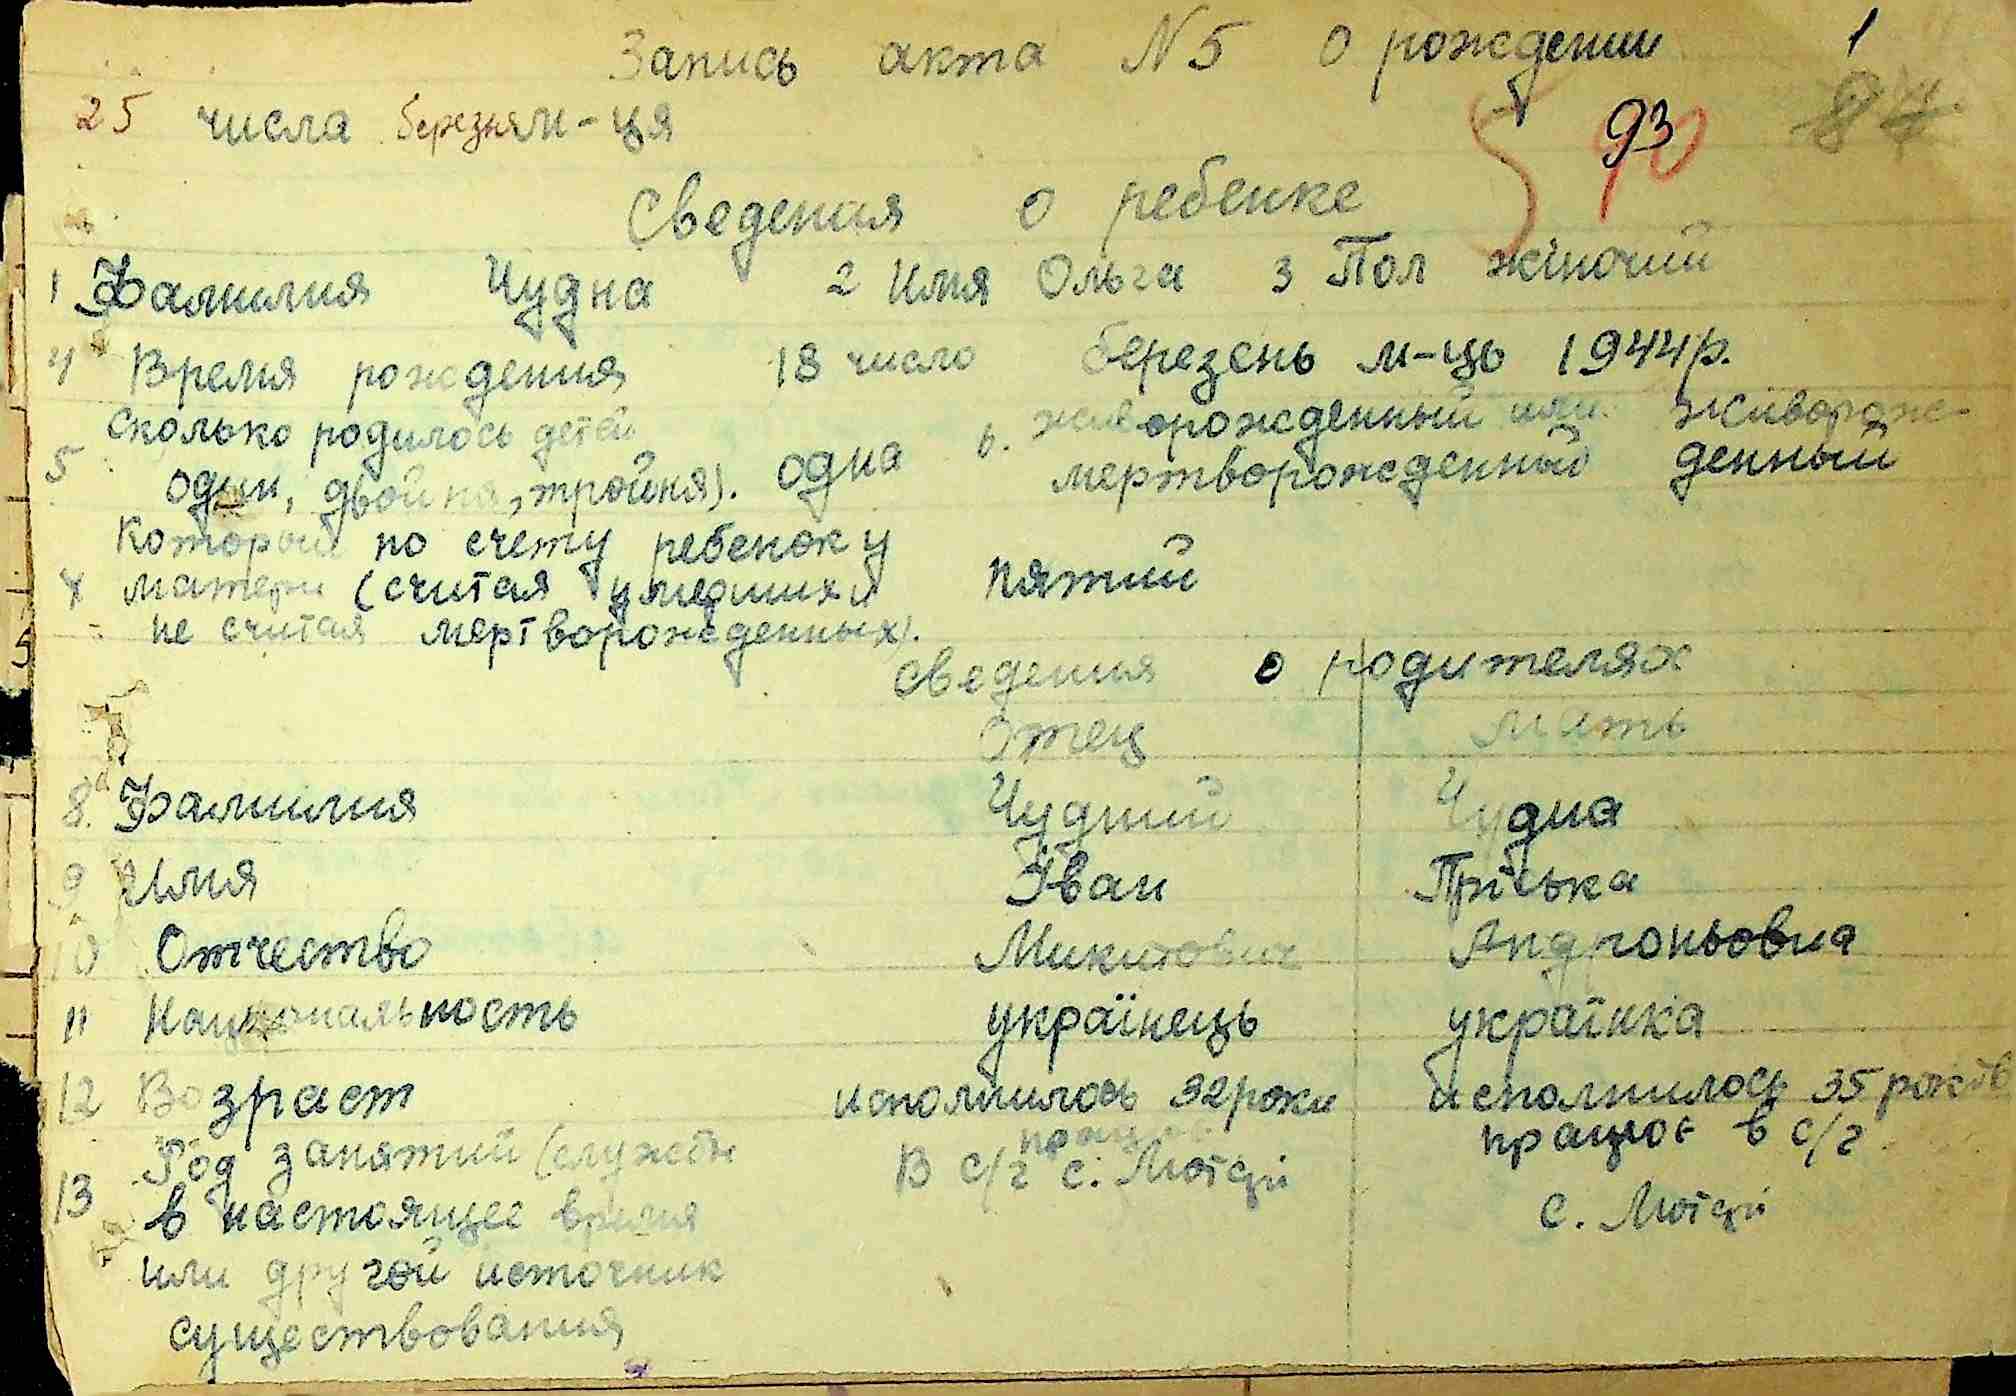 Запись акта N5 о рождении 1
25 числа березня м-ця 93 90 84
Сведения о ребенке
1 Фамилия Чудна 2 Имя Ольга 3 Пол жіночий
4 Время рождения 18 число березень м-ць 1944р.
5 Сколько родилось детей один, двойня, тройня). одна
6. живорожденный или мертворожденный живорожденный
7 Который по счету ребенок у
матери (считая умерших и пятий
не считая мертворожденных).
Сведения о родителях
Отец Мать
8. Фамилия Чудний Чудна
9 Имя Іван Пріська
10 Отчество Микитович Андроньовна
11 Национальность українець українка
12 Возраст исполнилось 32 роки исполнилось 35 років
13 Род занятий (службы
в настоящее время
или другой источник
существования
працює
В с/г с.
працює в с/г
с.